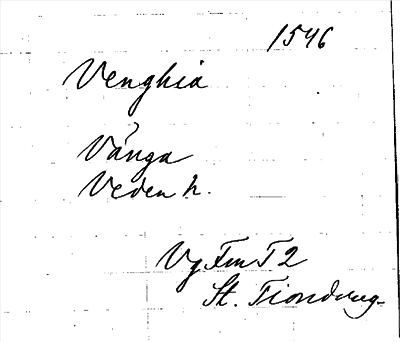 1546
Venghia
Vånga
Veden h.
Vg Fm T 2
St. Tiondeug-